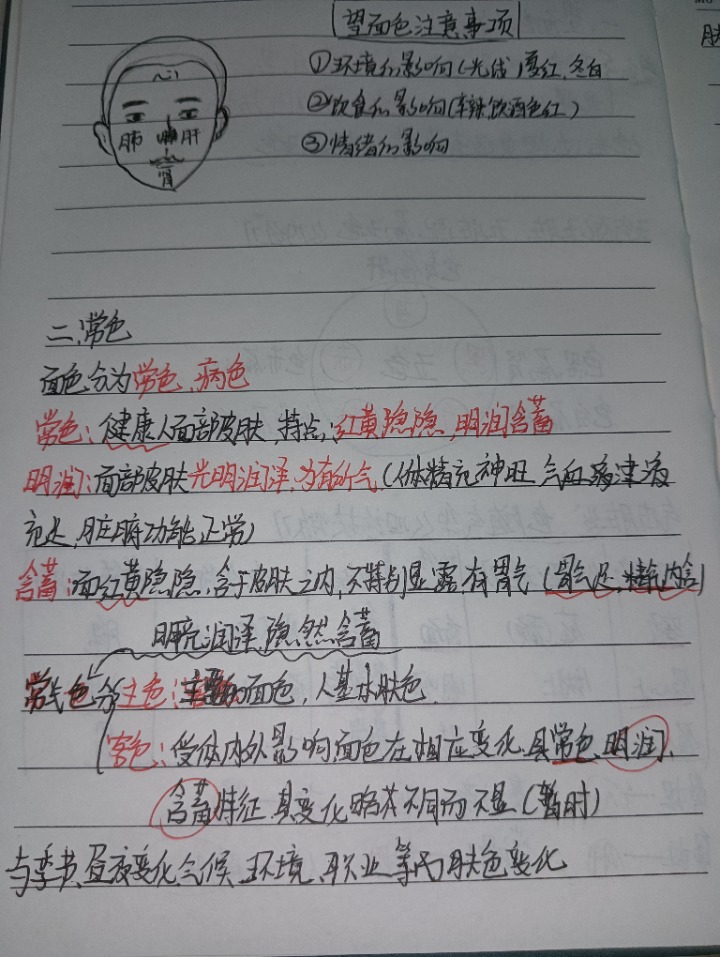 望面色注意事项
①环境的影响(光线)夏红,冬白
②饮食的影响(辛辣,饮酒色红)
③情绪的影响
心
肺 脾 肝
肾
二、常色
面色分为常色、病色
常色:健康人面部皮肤,特点:红黄隐隐,明润含蓄
明润:面部皮肤光明润泽,为有神气(体精充神旺、气血津液
充足,脏腑功能正常)
含蓄:面红黄隐隐,含于皮肤之内,不特别显露,有胃气(胃气足,精气内含)
明亮润泽,隐然含蓄
常色分主色:主要的面色,人基本肤色.
客色:受体内外影响,面色在相应变化.具常色、明润、
含蓄特征,其变化略其不同而不显(暂时)
与季节、昼夜变化、气候、环境、职业等而肤色变化